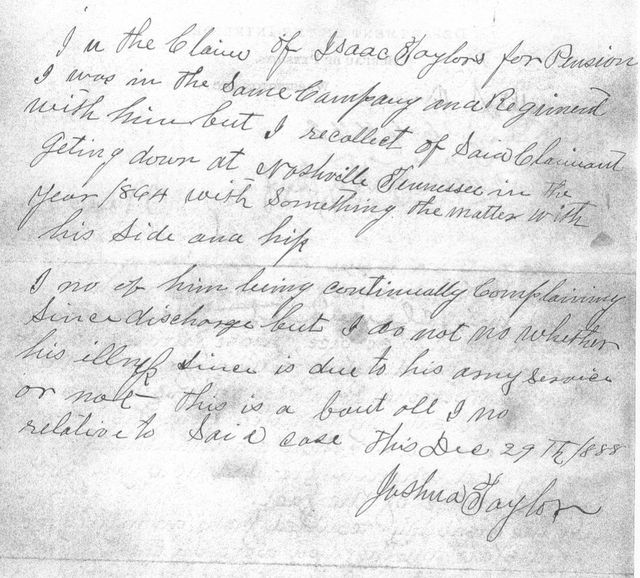 In the Claim of Isaac Taylors for Pension
I was in the Same Company and Regiment
with him but I recollect of Said Claimant
geting down at Nashville Tennessee in the
year 1864 with Something the matter with
his Side and hip
I no of him being continually Complaining
Since discharge but I do not no whether
his illness since is due to his army Service
or not this is a bout all I no
relative to Said case This Dec 29th 1888
Joshua Taylor